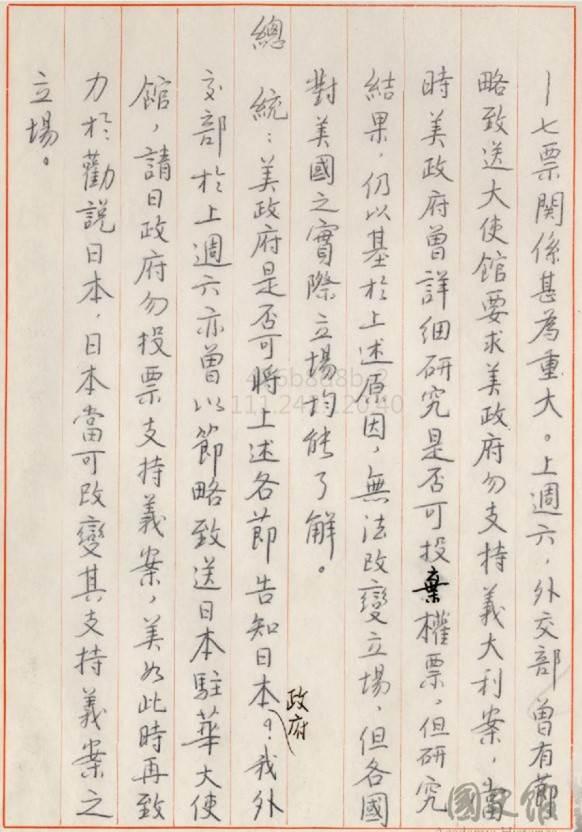 一七票關係甚為重大。上週六,外交部曾有節
略致送大使館要求美政府勿支持義大利案,當
時美政府曾詳細研究是否可投棄權票,但研究
結果,仍以基於上述原因,無法改變立場,但各國
對美國之實際立場均能了解。
總 統:美政府是否可將上述各節告知日本政府?我外
交部於上週六亦曾以節略致送日本駐華大使
館,請日政府勿投票支持義案,美如此時再致
力於勸說日本,日本當可改變其支持義案之
立場。
國史館